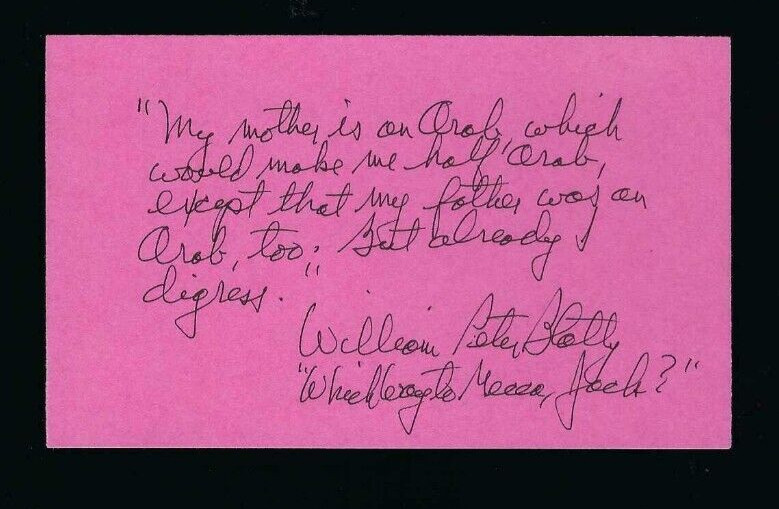 "My mother is an Arab, which
would make me half Arab,
except that my father was an
Arab, too. But already I
digress."
William Peter Blatty
"Which Way to Mecca, Jack?"